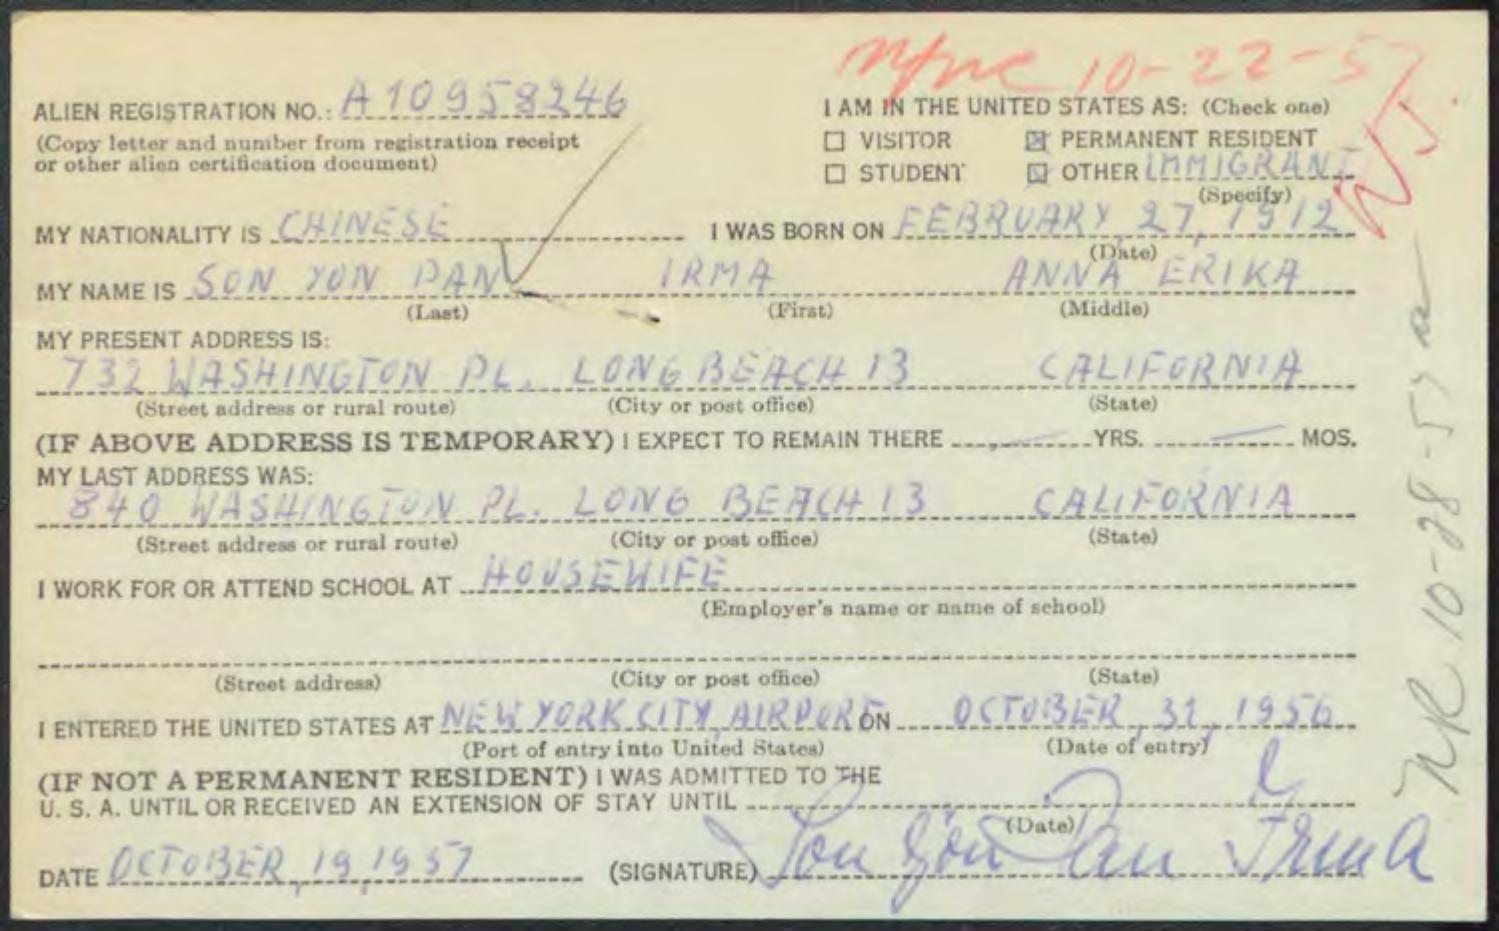 mfnc 10-22-57
ALIEN REGISTRATION NO.: A10958246
(Copy letter and number from registration receipt
or other alien certification document)
I AM IN THE UNITED STATES AS: (Check one)
☐ VISITOR ☒ PERMANENT RESIDENT
☐ STUDENT ☑ OTHER IMMIGRANT
(Specify)
MY NATIONALITY IS CHINESE I WAS BORN ON FEBRUARY, 27, 1912
(Date)
MY NAME IS SON YON PAN IRMA ANNA ERIKA
(Last) (First) (Middle)
MY PRESENT ADDRESS IS:
732 WASHINGTON PL. LONG BEACH 13 CALIFORNIA
(Street address or rural route) (City or post office) (State)
(IF ABOVE ADDRESS IS TEMPORARY) I EXPECT TO REMAIN THERE — YRS. — MOS.
MY LAST ADDRESS WAS:
840 WASHINGTON PL. LONG BEACH 13 CALIFORNIA
(Street address or rural route) (City or post office) (State)
I WORK FOR OR ATTEND SCHOOL AT HOUSEWIFE
(Employer's name or name of school)
(Street address) (City or post office) (State)
I ENTERED THE UNITED STATES AT NEW YORK CITY, AIRPORT ON OCTOBER, 31, 1956
(Port of entry into United States) (Date of entry)
(IF NOT A PERMANENT RESIDENT) I WAS ADMITTED TO THE
U. S. A. UNTIL OR RECEIVED AN EXTENSION OF STAY UNTIL
(Date)
DATE OCTOBER, 19, 1957 (SIGNATURE) Son Yon Pan Irma
NR 10-28-57